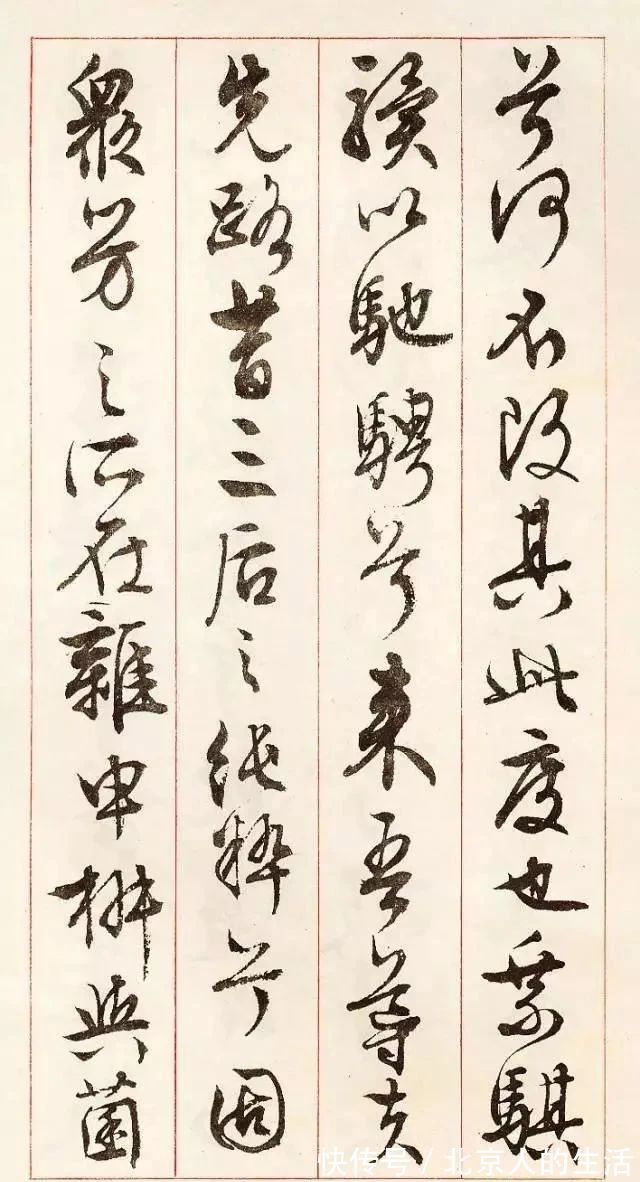 兮何不改其此度也乘騏
驥以馳騁兮来吾導夫
先路昔三后之純粹兮固
眾芳之所在雜申椒與菌
快传号/北京人的生活